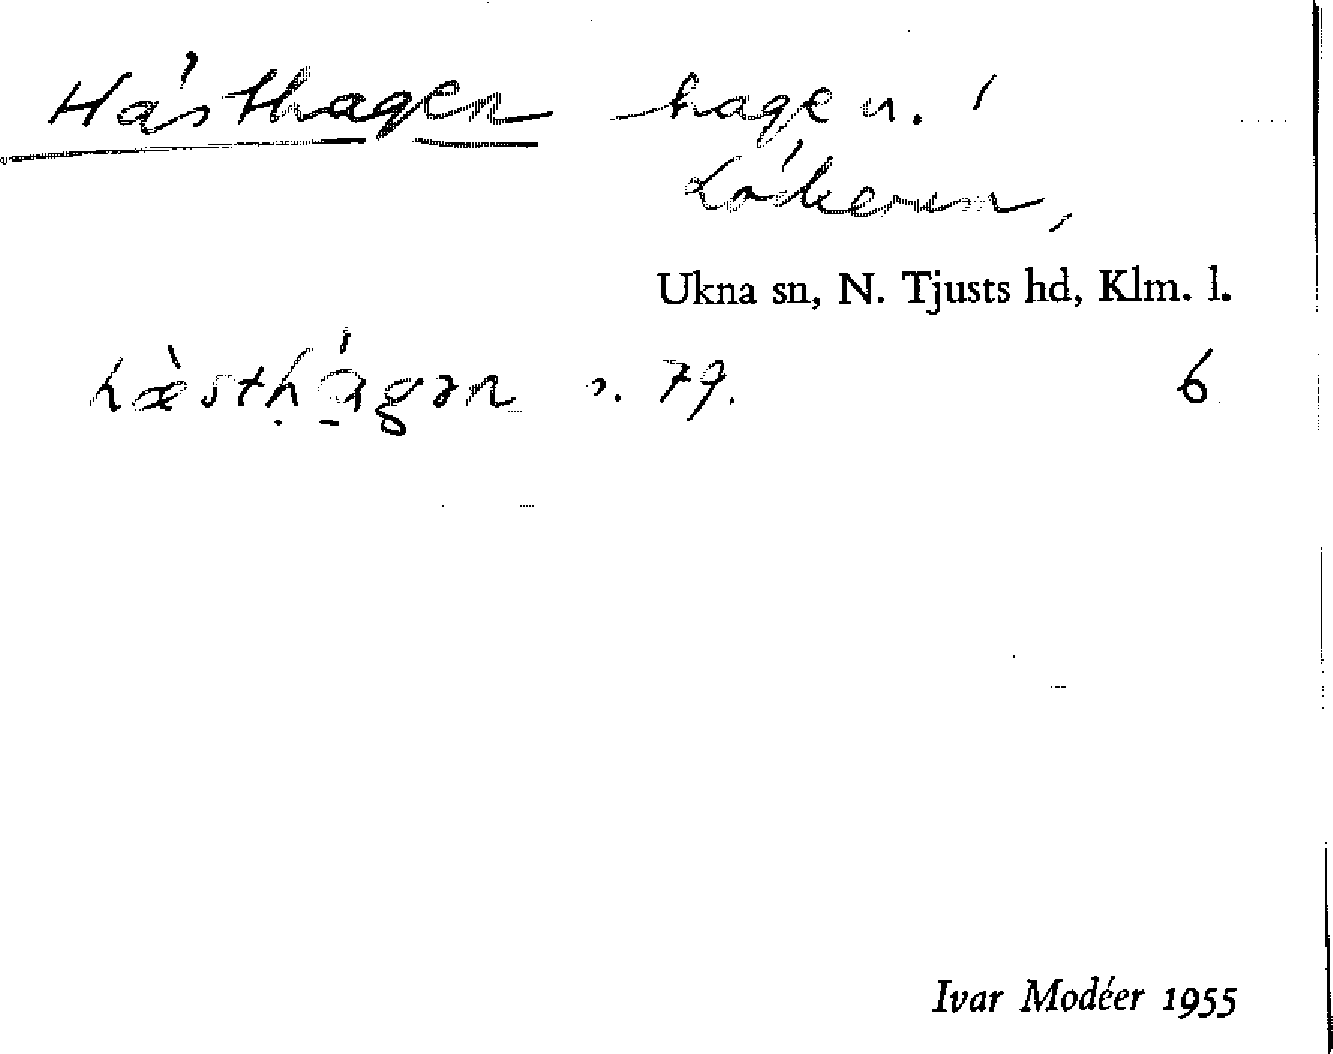 Hästhagen hage n. i
Lökerum,
Ukna sn, N. Tjusts hd, Klm. l.
hæ̀sthágən s. 79. 6
Ivar Modéer 1955